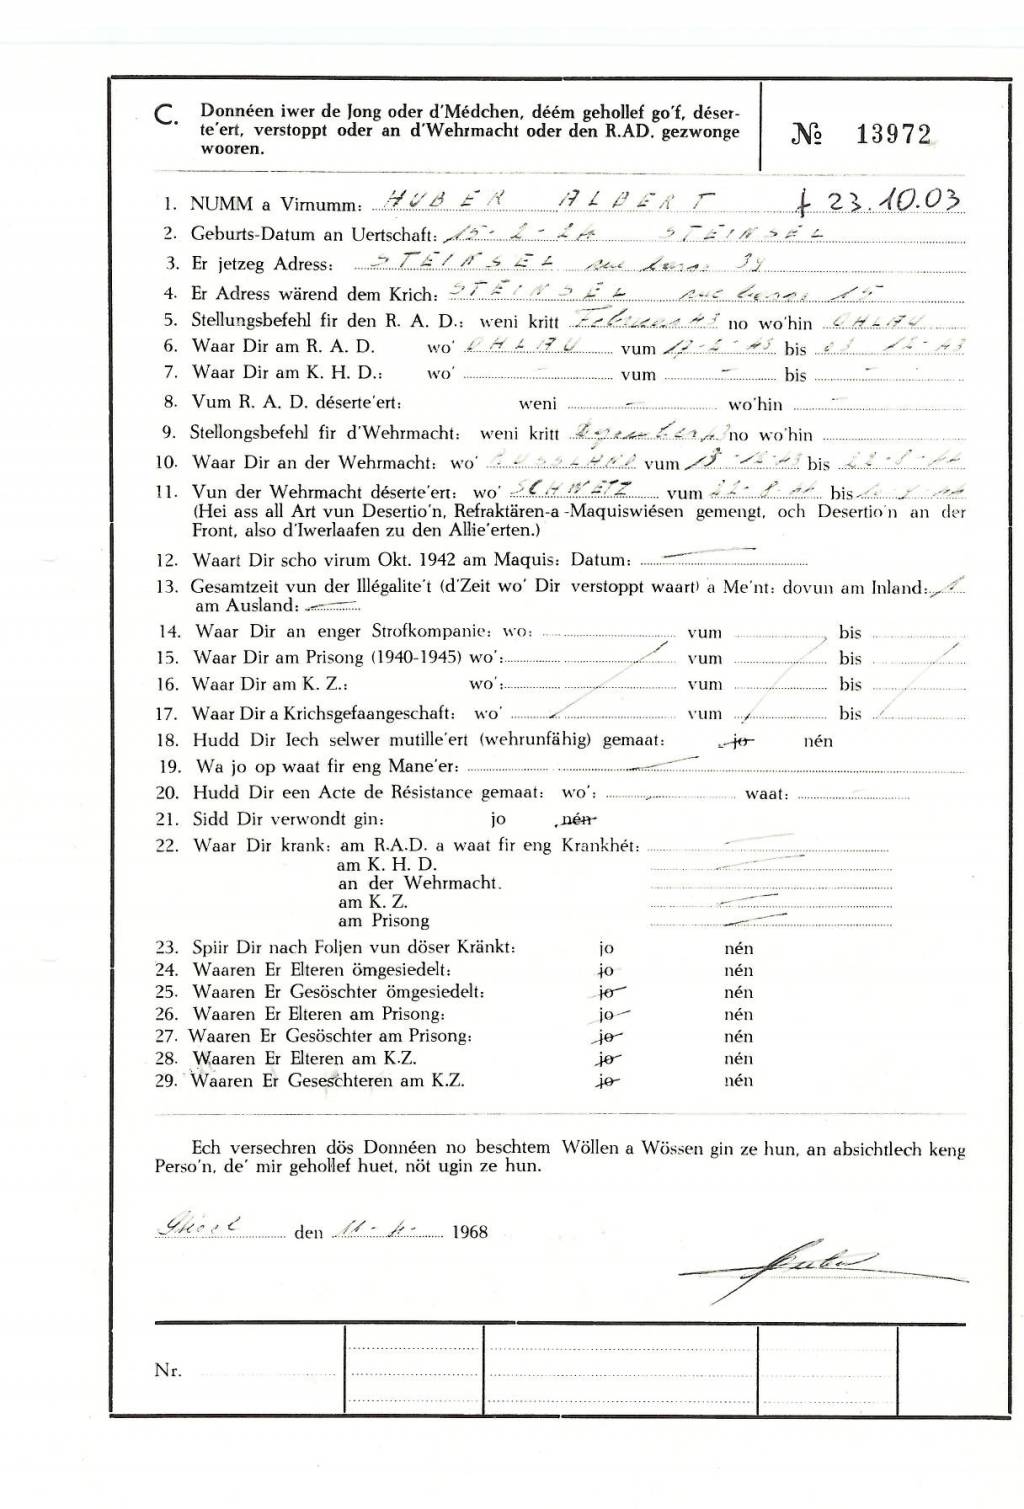 C. Donnéen iwer de Jong oder d'Médchen, déém gehollef go'f, déser-
te'ert, verstoppt oder an d'Wehrmacht oder den R.AD. gezwonge
wooren.
№ 13972
1. NUMM a Virnumm: HUBER ALBERT † 23.10.03
2. Geburts-Datum an Uertschaft: 15-2-24 STEINSEL
3. Er jetzeg Adress: STEINSEL rue 34
4. Er Adress wärend dem Krich: STEINSEL rue 15
5. Stellungsbefehl fir den R. A. D.: weni kritt Februar 43 no wo'hin OHLAU
6. Waar Dir am R. A. D. wo' OHLAU vum 17-2-43 bis 03 12-43
7. Waar Dir am K. H. D.: wo' - vum - bis -
8. Vum R. A. D. déserte'ert: weni - wo'hin -
9. Stellongsbefehl fir d'Wehrmacht: weni kritt 43 no wo'hin
10. Waar Dir an der Wehrmacht: wo' RUSSLAND vum 13-12-43 bis 22-8-44
11. Vun der Wehrmacht déserte'ert: wo' SCHWETZ vum 22-8-44 bis
(Hei ass all Art vun Desertio'n, Refraktären-a -Maquiswiésen gemengt, och Desertio'n an der
Front, also d'Iwerlaafen zu den Allie'erten.)
12. Waart Dir scho virum Okt. 1942 am Maquis: Datum: —
13. Gesamtzeit vun der Illégalite't (d'Zeit wo' Dir verstoppt waart) a Me'nt: dovun am Inland:
am Ausland: —
14. Waar Dir an enger Strofkompanie: wo: vum bis
15. Waar Dir am Prisong (1940-1945) wo': vum bis
16. Waar Dir am K. Z.: wo': vum bis
17. Waar Dir a Krichsgefaangeschaft: wo' vum bis
18. Hudd Dir Iech selwer mutille'ert (wehrunfähig) gemaat: jo nén
19. Wa jo op waat fir eng Mane'er: —
20. Hudd Dir een Acte de Résistance gemaat: wo': waat:
21. Sidd Dir verwondt gin: jo nén
22. Waar Dir krank: am R.A.D. a waat fir eng Krankhét: —
am K. H. D. —
an der Wehrmacht.
am K. Z. —
am Prisong —
23. Spiir Dir nach Foljen vun döser Kränkt: jo nén
24. Waaren Er Elteren ömgesiedelt: jo nén
25. Waaren Er Gesöschter ömgesiedelt: jo nén
26. Waaren Er Elteren am Prisong: jo nén
27. Waaren Er Gesöschter am Prisong: jo nén
28. Waaren Er Elteren am K.Z. jo nén
29. Waaren Er Geseschteren am K.Z. jo nén
Ech versechren dös Donnéen no beschtem Wöllen a Wössen gin ze hun, an absichtlech keng
Perso'n, de' mir gehollef huet, nöt ugin ze hun.
den 11-4- 1968
Huber
Nr.